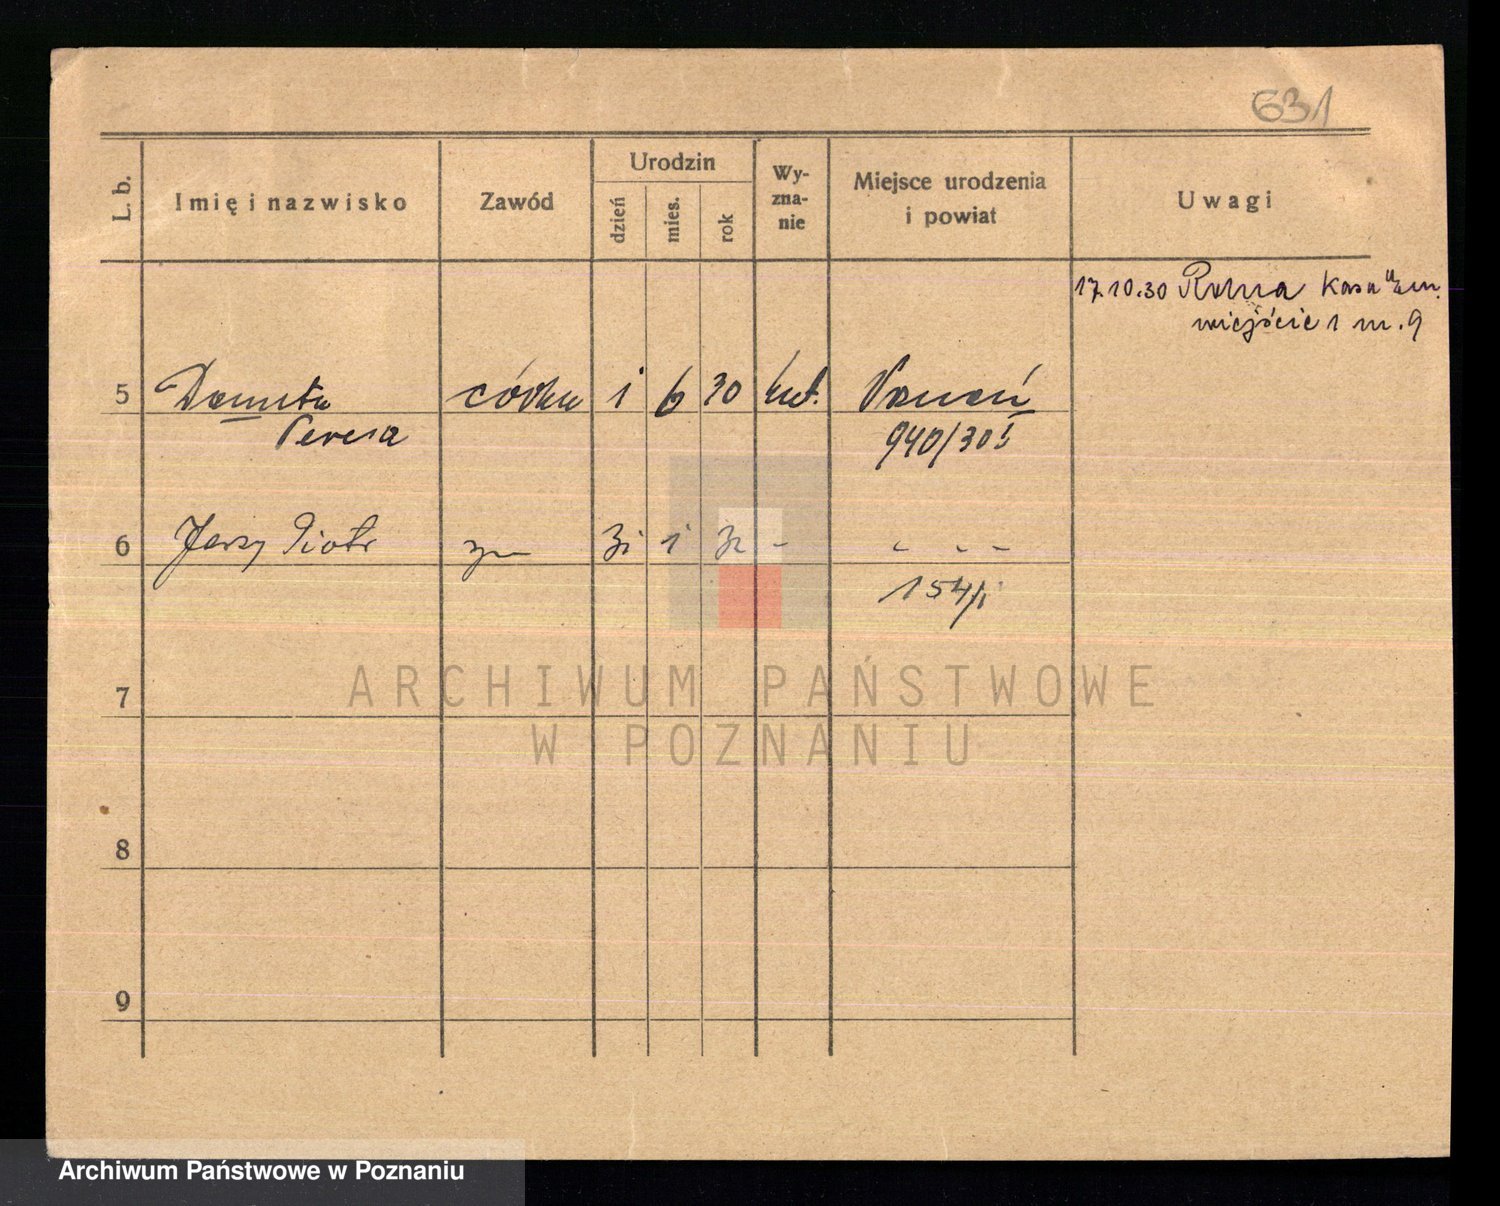 631
L. b.
Imię i nazwisko
Zawód
Urodzin
dzień
mies.
rok
Wy-
zna-
nie
Miejsce urodzenia
i powiat
Uwagi
17.10.30 Kasa
wiejście 1 m. 9
5 Danuta córka 1 6 30 kat. Poznań
Teresa 940/30
6 Jerzy Piotr syn 31 1 32 - - - -
154/I
7
8
9
ARCHIWUM PAŃSTWOWE
W POZNANIU
Archiwum Państwowe w Poznaniu